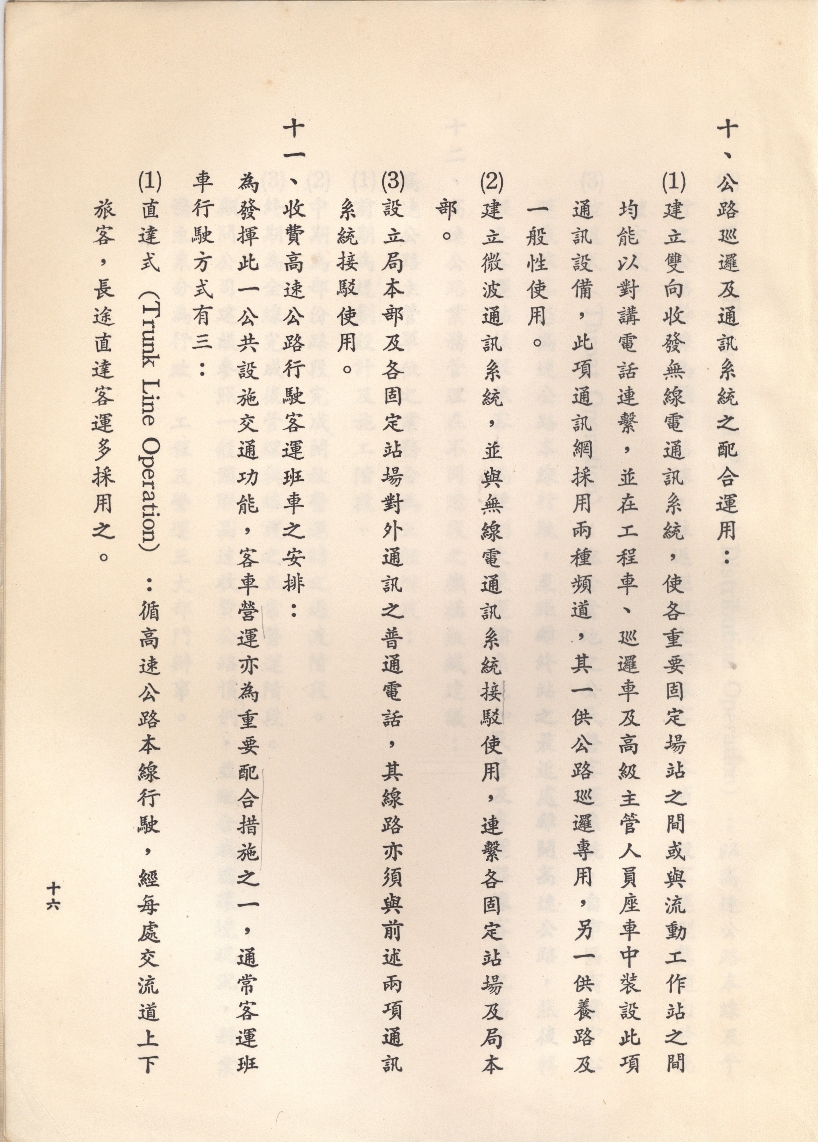 十、公路巡邏及通訊系統之配合運用：
⑴建立雙向收發無線電通訊系統，使各重要固定場站之間或與流動工作站之間
均能以對講電話連繫，並在工程車、巡邏車及高級主管人員座車中裝設此項
通訊設備，此項通訊網採用兩種頻道，其一供公路巡邏專用，另一供養路及
一般性使用。
⑵建立微波通訊系統，並與無線電通訊系統接駁使用，連繫各固定站場及局本
部。
⑶設立局本部及各固定站場對外通訊之普通電話，其線路亦須與前述兩項通訊
系統接駁使用。
十一、收費高速公路行駛客運班車之安排：
為發揮此一公共設施交通功能，客車營運亦為重要配合措施之一，通常客運班
車行駛方式有三：
⑴直達式（Trunk Line Operation）：循高速公路本線行駛，經每處交流道上下
旅客，長途直達客運多採用之。
十六